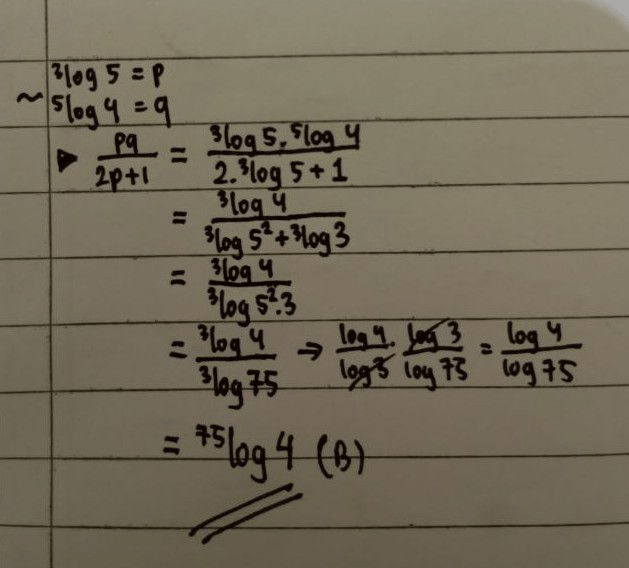 ³log 5 = p
~ ⁵log 4 = q
▶ pq/2p+1 = ³log 5 . ⁵log 4/2. ³log 5 + 1
= ³log 4/³log 5² + ³log 3
= ³log 4/³log 5².3
= ³log 4/³log 75 → log 4/log 3 . log 3/log 75 = log 4/log 75
= ⁷⁵log 4 (B)